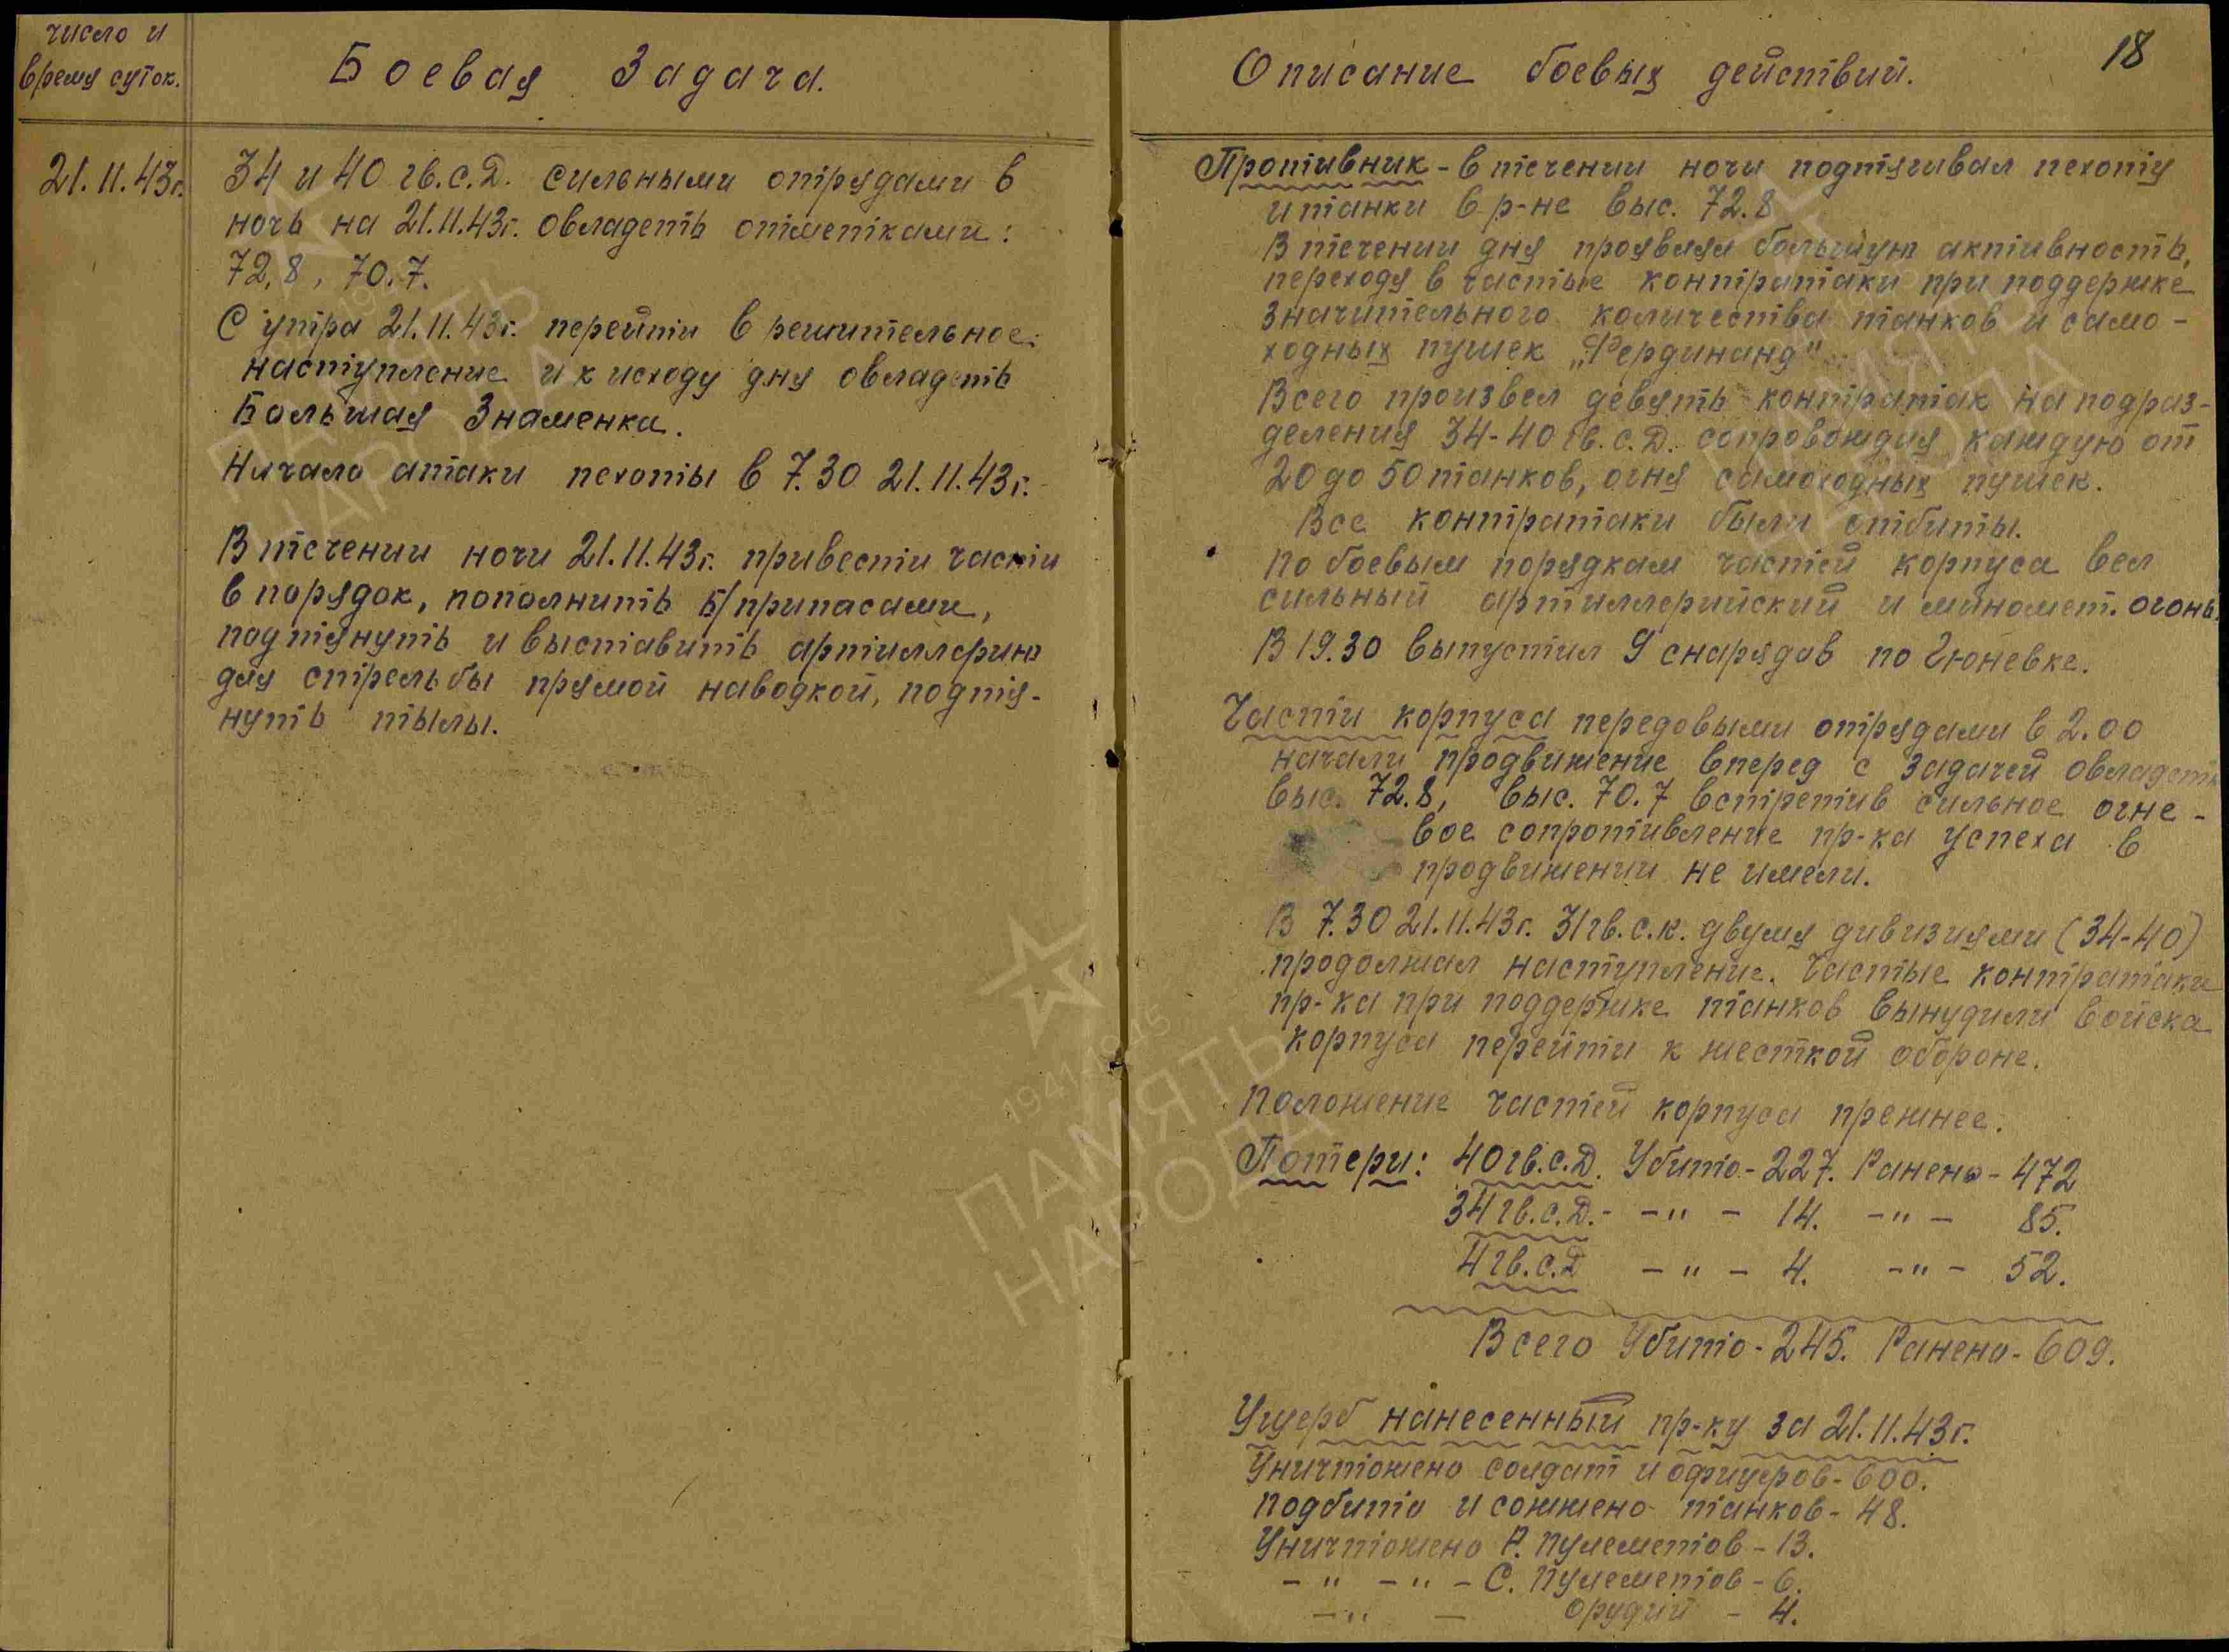 число и
время суток.
Боевая Задача.
21.11.43г.
34 и 40 гв.с.д. сильными отрядами в
ночь на 21.11.43г. овладеть отметками:
72,8, 70.7.
С утра 21.11.43г. перейти в решительное
наступление и к исходу дня овладеть
Большая Знаменка.
Начало атаки пехоты в 7.30 21.11.43г.
В течении ночи 21.11.43г. привести части
в порядок, пополнить б/припасами,
подтянуть и выставить артиллерию
для стрельбы прямой наводкой, подтя-
нуть тылы.
Описание боевых действий.
18
Противник - в течении ночи подтягивал пехоту
и танки в р-не выс. 72.8
В течении дня проявлял большую активность,
переходя в частые контратаки при поддержке
значительного количества танков и само-
ходных пушек „Фердинанд"
Всего произвел девять контратак на подраз-
деления 34-40 гв.с.д. сопровождая каждую от
20 до 50 танков, огня самоходных пушек.
Все контратаки были отбиты.
По боевым порядкам частей корпуса вел
сильный артиллерийский и миномет. огонь.
В 19.30 выпустил 9 снарядов по Гюневке.
Части корпуса передовыми отрядами в 2.00
начали продвижение вперед с задачей овладеть
выс. 72.8, выс. 70.7 встретив сильное огне-
вое сопротивление пр-ка успеха в
продвижении не имели.
В 7.30 21.11.43г. 31 гв.с.к. двумя дивизиями (34-40)
продолжал наступление. Частые контратаки
пр-ка при поддержке танков вынудили войска
корпуса перейти к жесткой обороне.
Положение частей корпуса прежнее.
Потери: 40 гв.с.д. Убито - 227. Ранено - 472
34 гв.с.д. - -"- 14. -"- 85.
4 гв.с.д -"- 4. -"- 52.
Всего Убито - 245. Ранено - 609.
Ущерб нанесенный пр-ку за 21.11.43г.
Уничтожено солдат и офицеров - 600.
Подбито и сожжено танков - 48.
Уничтожено Р. Пулеметов - 13.
-"- -"- С. Пулеметов - 6.
-"- Орудий - 4.
1941-1945
ПАМЯТЬ
НАРОДА